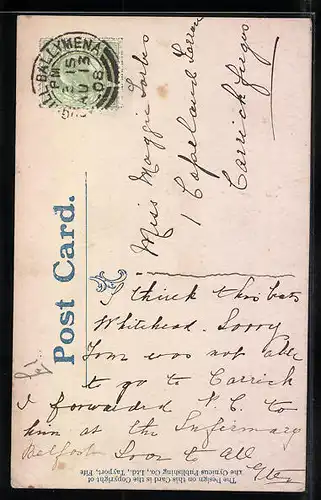 BALLYMENA
3 15 PM
AU 3
08
Post Card.
Miss Maggie Forbes
1 Copeland Terrace
Carrickfergus
I think this beats
Whitehead. Sorry
Tom was not able
to go to Carrick
I forwarded P.C. to
him at the Infirmary
Belfast Love to all
The Design on this Card is the Copyright of
the Cynicus Publishing Co., Ltd., Tayport, Fife